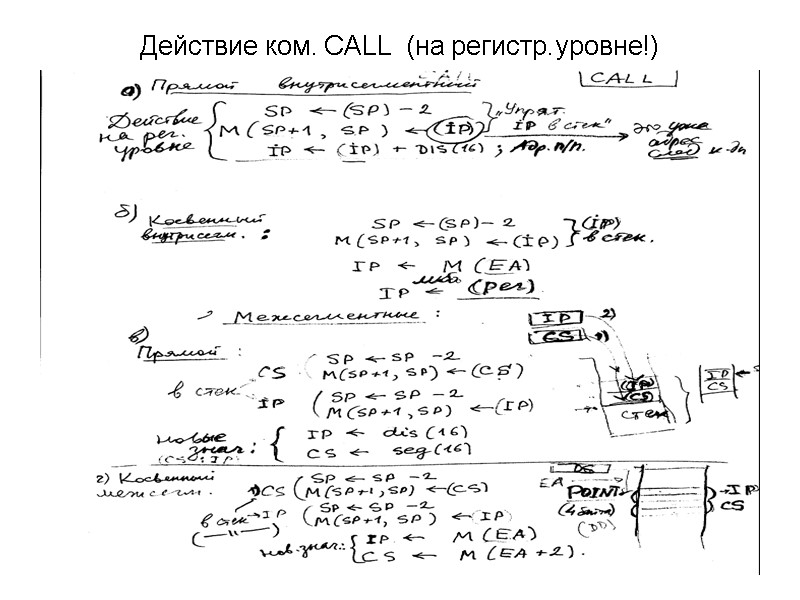 Действие ком. CALL (на регистр.уровне!)
CALL
а) Прямой внутрисегментный
Действие на рег. уровне
SP ← (SP) – 2
M(SP+1, SP) ← (IP)
IP ← (IP) + DIS(16) ; Адр. п/п.
"Упрят. IP в стек"
это уже адрес след к-ды
б) Косвенный внутрисегм. :
SP ← (SP) – 2
M(SP+1, SP) ← (IP)
(IP) в стек.
IP ← M(EA)
либо
IP ← (рег)
Межсегментные :
в)
Прямой :
в стек
CS
SP ← SP – 2
M(SP+1, SP) ← (CS)
IP
SP ← SP – 2
M(SP+1, SP) ← (IP)
новые знач :
(CS, IP)
IP ← dis(16)
CS ← seg(16)
IP 2)
CS 1)
(IP)
(CS)
стек
IP
CS
г) Косвенный межсегм.
1) CS
SP ← SP – 2
M(SP+1, SP) ← (CS)
в стек
IP
SP ← SP – 2
M(SP+1, SP) ← (IP)
(—"—)
нов.знач.:
IP ← M(EA)
CS ← M(EA+2).
DS
EA
POINT
(4 байта)
(DD)
IP
CS